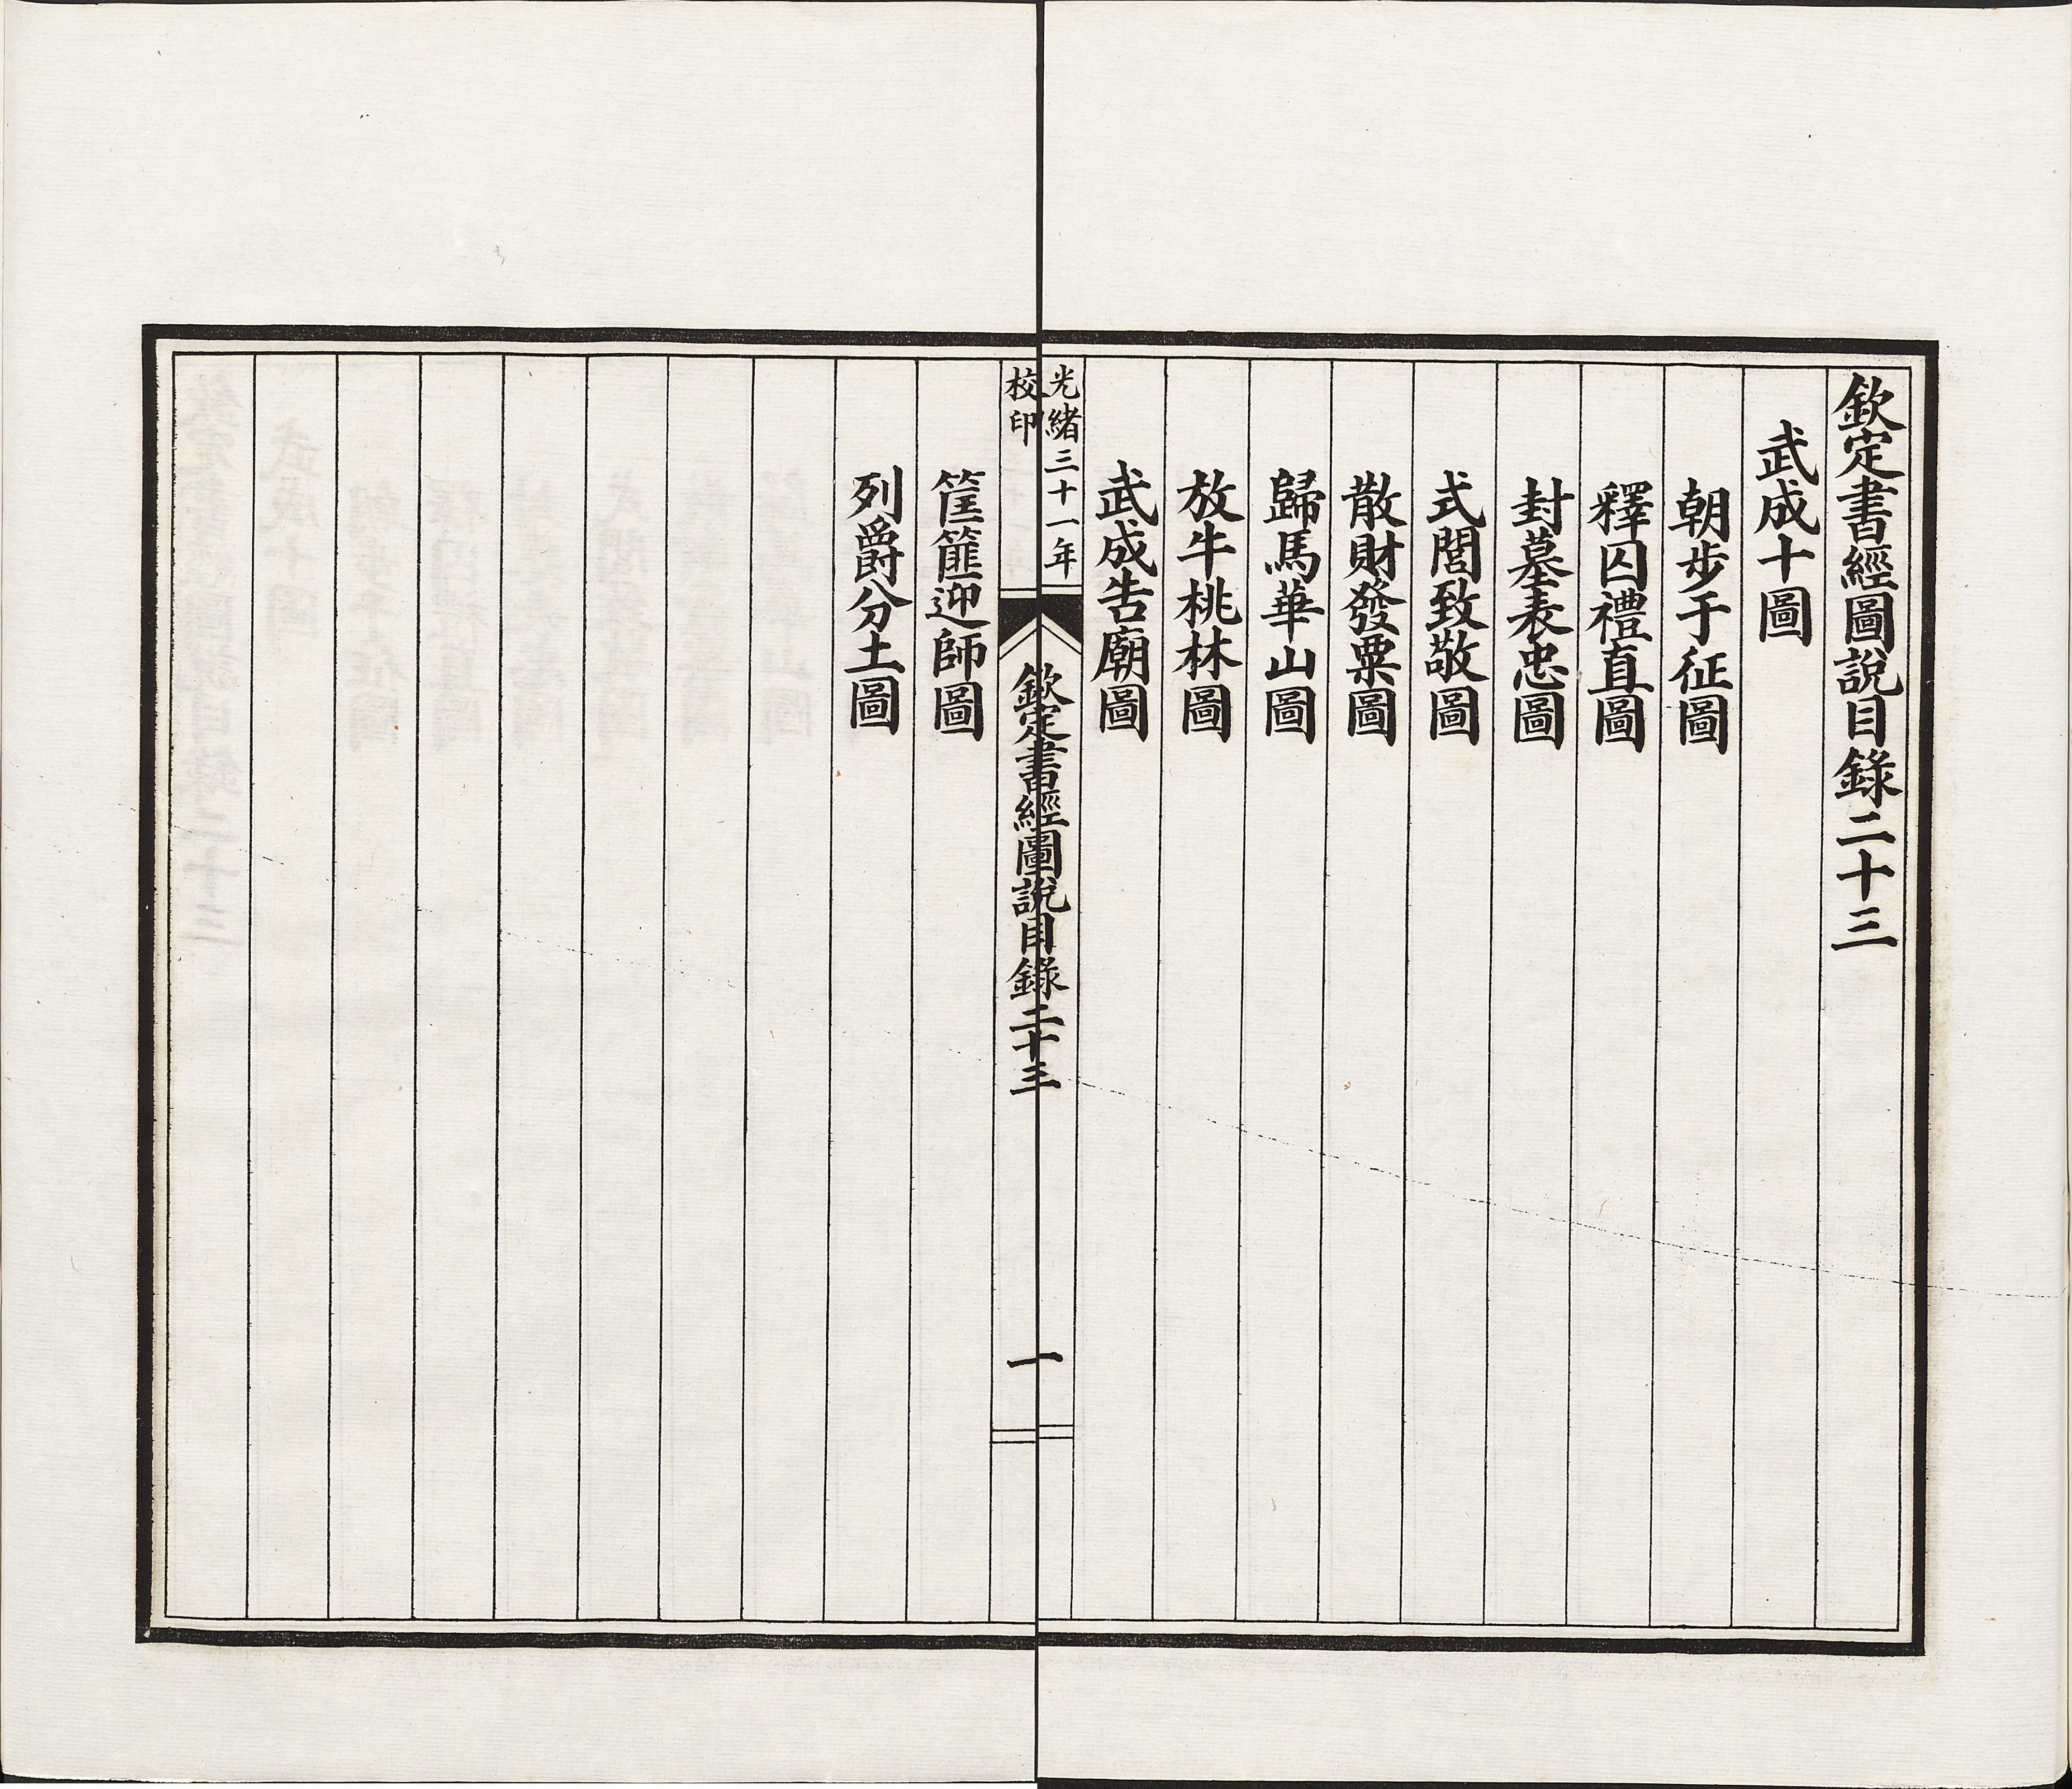 欽定書經圖說目錄二十三
武成十圖
朝步于征圖
釋囚禮直圖
封墓表忠圖
式閭致敬圖
散財發粟圖
歸馬華山圖
放牛桃林圖
武成告廟圖
光緒三十一年
校印
欽定書經圖說目錄二十三
一
筐篚迎師圖
列爵分土圖